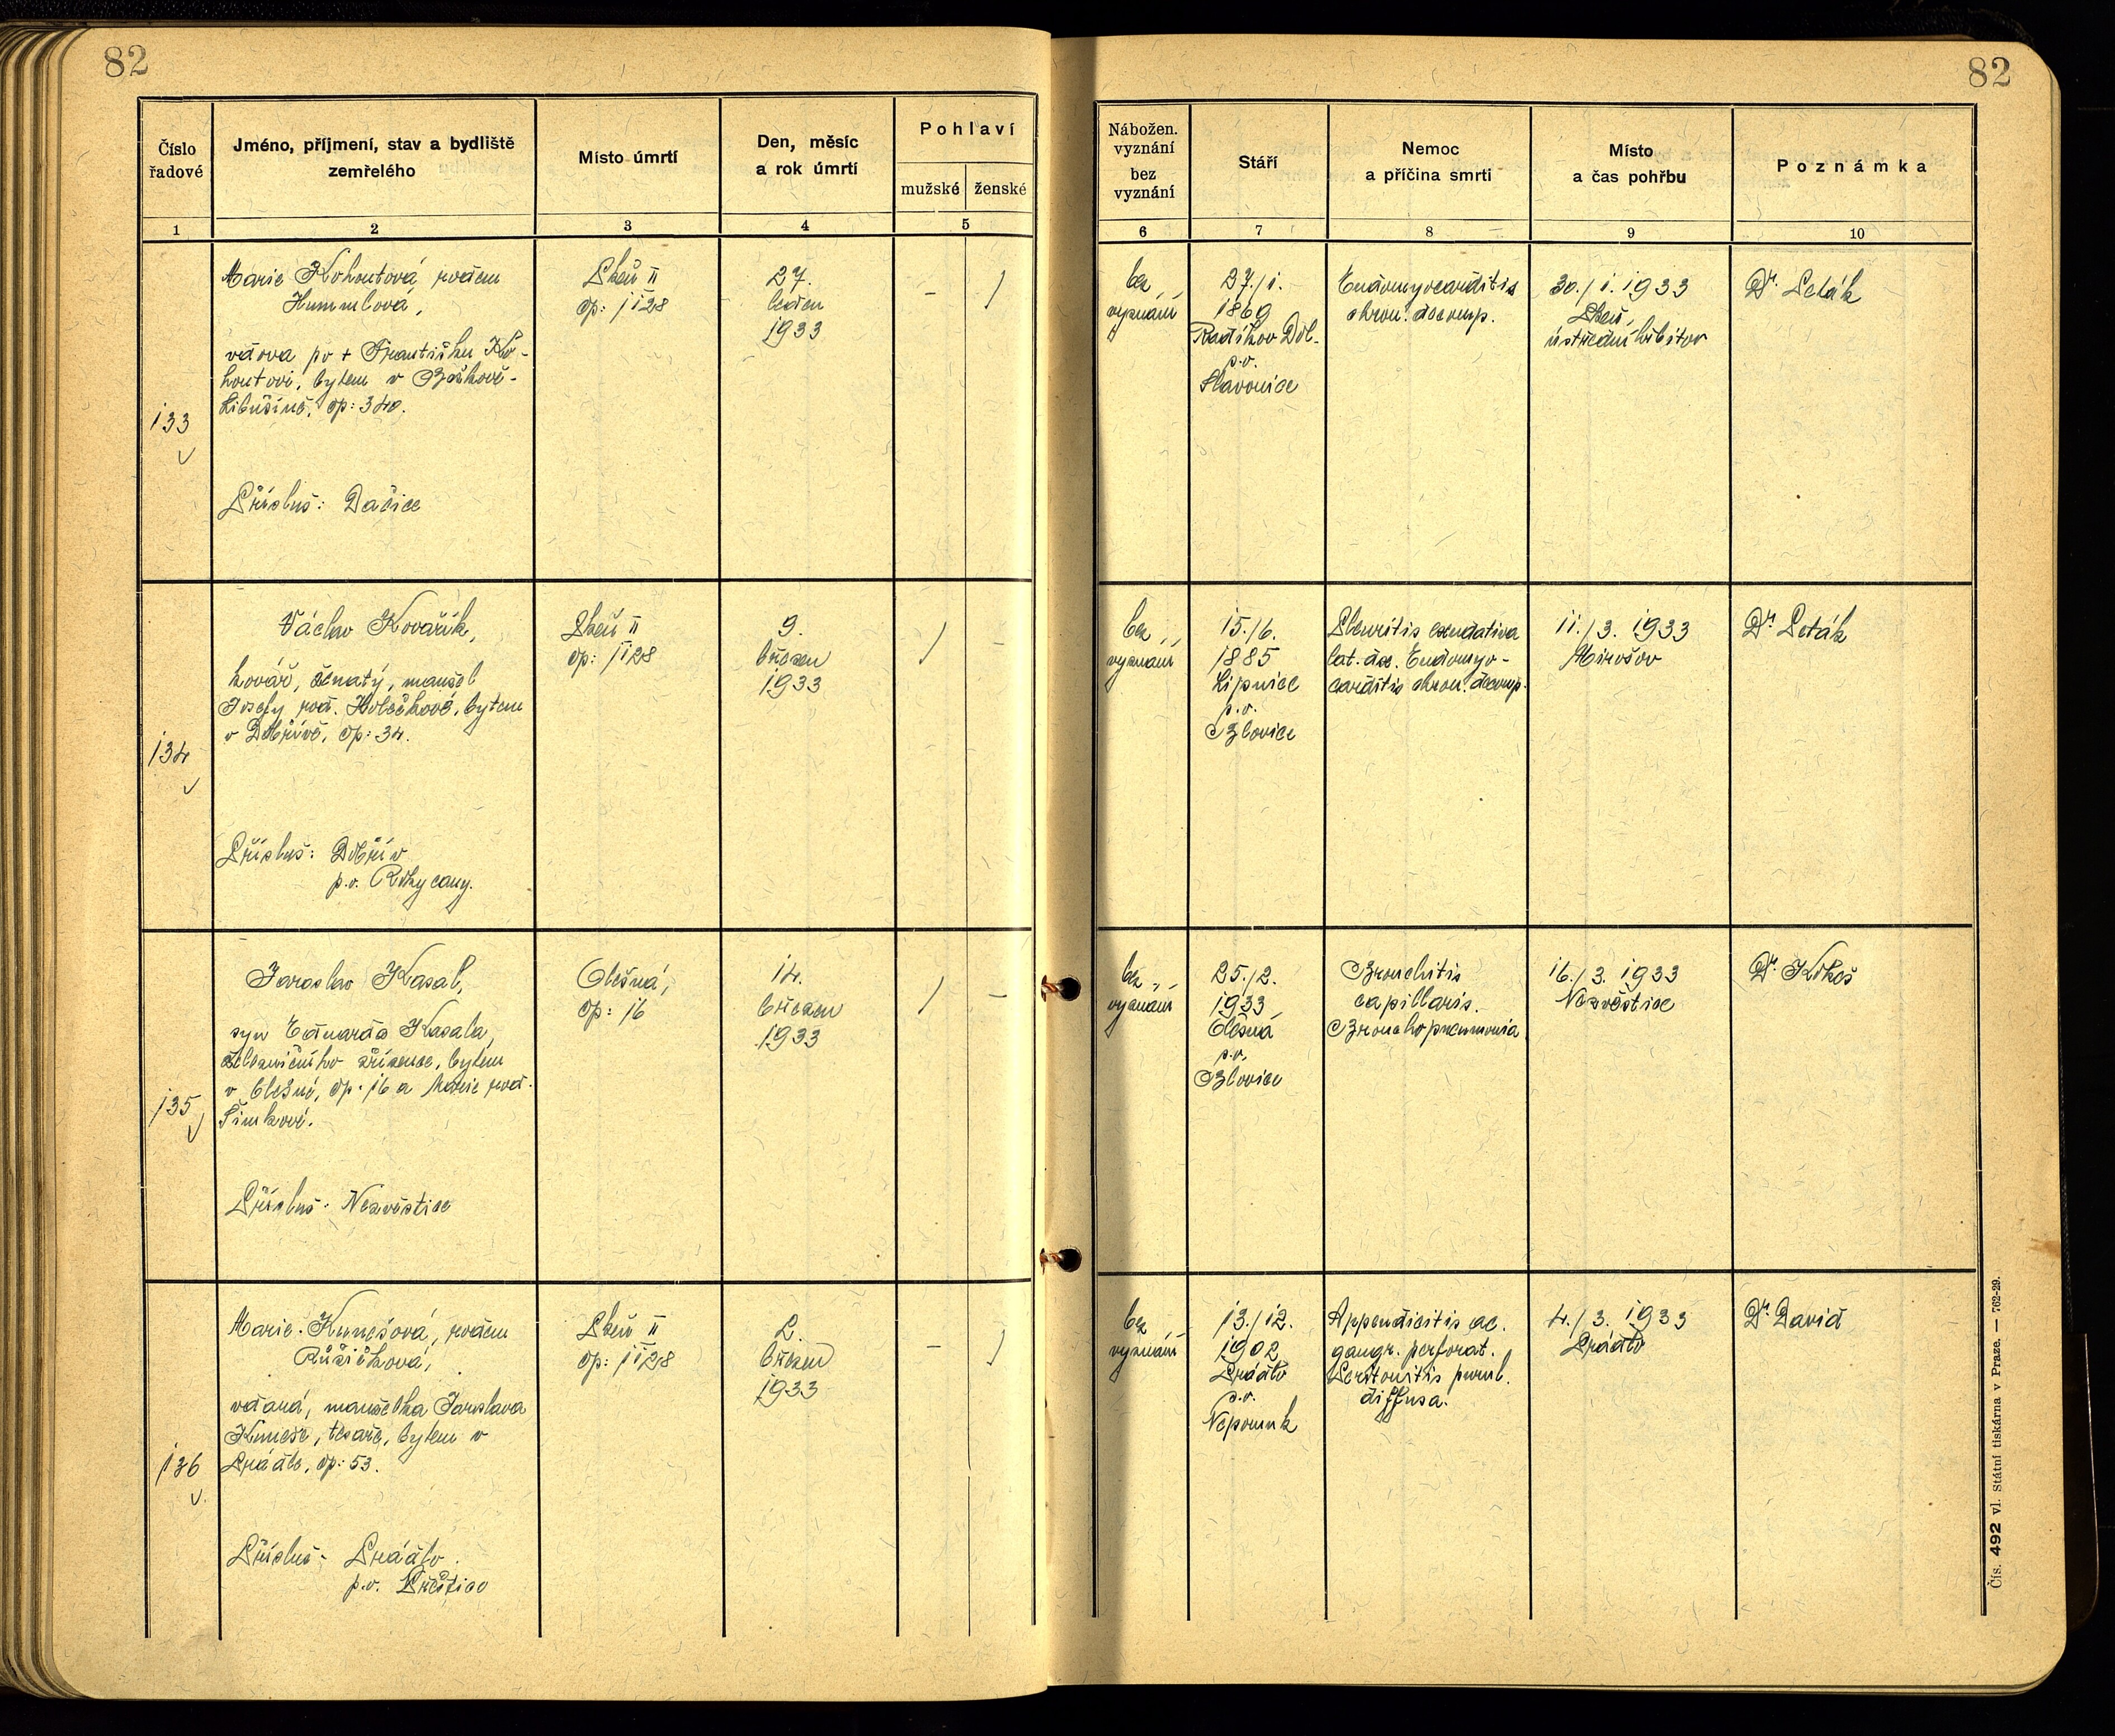 82
82
Číslo
řadové
Jméno, příjmení, stav a bydliště
zemřelého
Místo úmrtí
Den, měsíc
a rok úmrtí
Pohlaví
mužské
ženské
Nábožen.
vyznání
bez
vyznání
Stáří
Nemoc
a příčina smrti
Místo
a čas pohřbu
Poznámka
1
2
3
4
5
6
7
8
9
10
133
Marie Kohoutová, rozem
Hummlová,
vdova po + Františku Ko-
houtovi, bytem v Božkově-
Libušíně, čp: 340.
Přísluš: Dačice
Plzeň II
čp: 1128
27.
leden
1933
-
/
bez
vyznání
27./1.
1869
Radíkov Dol.
p.o.
Slavonice
Endomyocarditis
chron. decomp.
30./1. 1933
Plzeň,
ústřední hřbitov
Dr. Leták
134
Václav Kovařík,
kovář, ženatý, manžel
Josefy roz. Holečkové, bytem
v Dobřívě, čp: 34.
Přísluš: Dobřív
p.o. Rokycany.
Plzeň II
čp: 1128
9.
březen
1933
/
-
bez
vyznání
15./6.
1885
Lipnice
p.o.
Blovice
Pleuritis exudativa
lat. dx. Endomyo-
carditis chron. decomp.
11./3. 1933
Mirošov
Dr. Leták
135
Jaroslav Kasal,
syn Eduarda Kasala,
železničního zřízence, bytem
v Olešné, čp: 16 a Marie roz.
Šimkové.
Příslus: Nezvěstice
Olešná,
čp: 16
14.
březen
1933
/
-
bez
vyznání
25./2.
1933
Olešná
p.o.
Blovice
Bronchitis
capillaris.
Bronchopneumonia
16./3. 1933
Nezvěstice
Dr. Kikeš
136
Marie Kunešová, rozem
Růžičková,
vdaná, manželka Jaroslava
Kuneše, tesaře, bytem v
Prádle, čp: 53.
Příslus: Prádlo
p.o. Přeštice
Plzeň II
čp: 1128
2.
březen
1933
-
/
bez
vyznání
13./12.
1902
Prádlo
p.o.
Nepomuk
Appendicitis ac.
gangr. perforat.
Peritonitis purul.
diffusa.
4./3. 1933
Prádlo
Dr. David
Čís. 492 vl. Státní tiskárna v Praze. — 762-29.